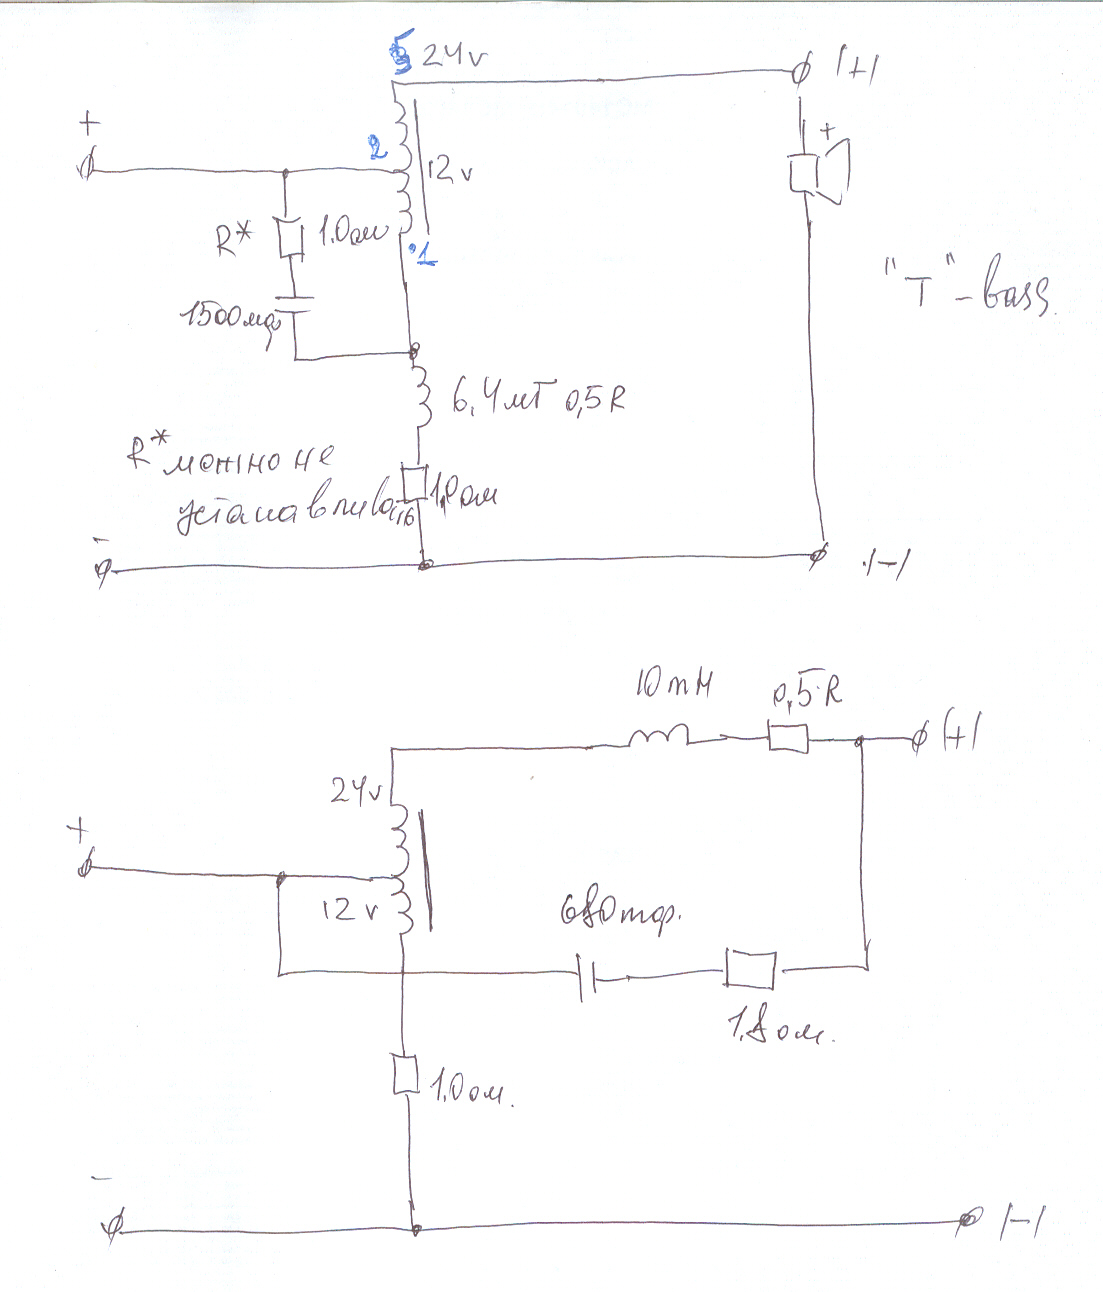 5 24v
/+/
+
+
2
12v
R* 1.0ом
1
"T"-bass
1500мф
6,4мГ 0,5R
R* можно не
устанавливать
1,0ом
-
/-/
10mH
0,5R
24v
/+/
+
12v
680mф.
1,8ом.
1.0ом.
-
/-/